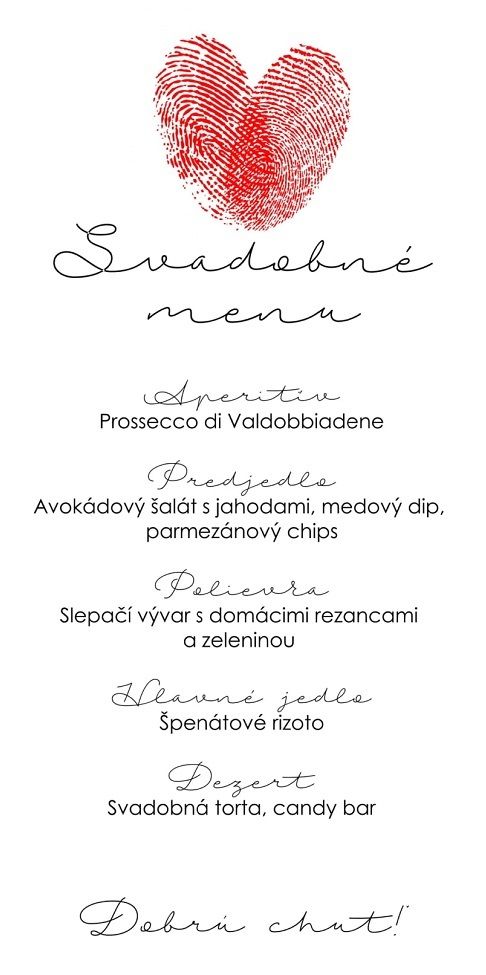 Svadobné
menu
Aperitív
Prossecco di Valdobbiadene
Predjedlo
Avokádový šalát s jahodami, medový dip,
parmezánový chips
Polievka
Slepačí vývar s domácimi rezancami
a zeleninou
Hlavné jedlo
Špenátové rizoto
Dezert
Svadobná torta, candy bar
Dobrú chuť!